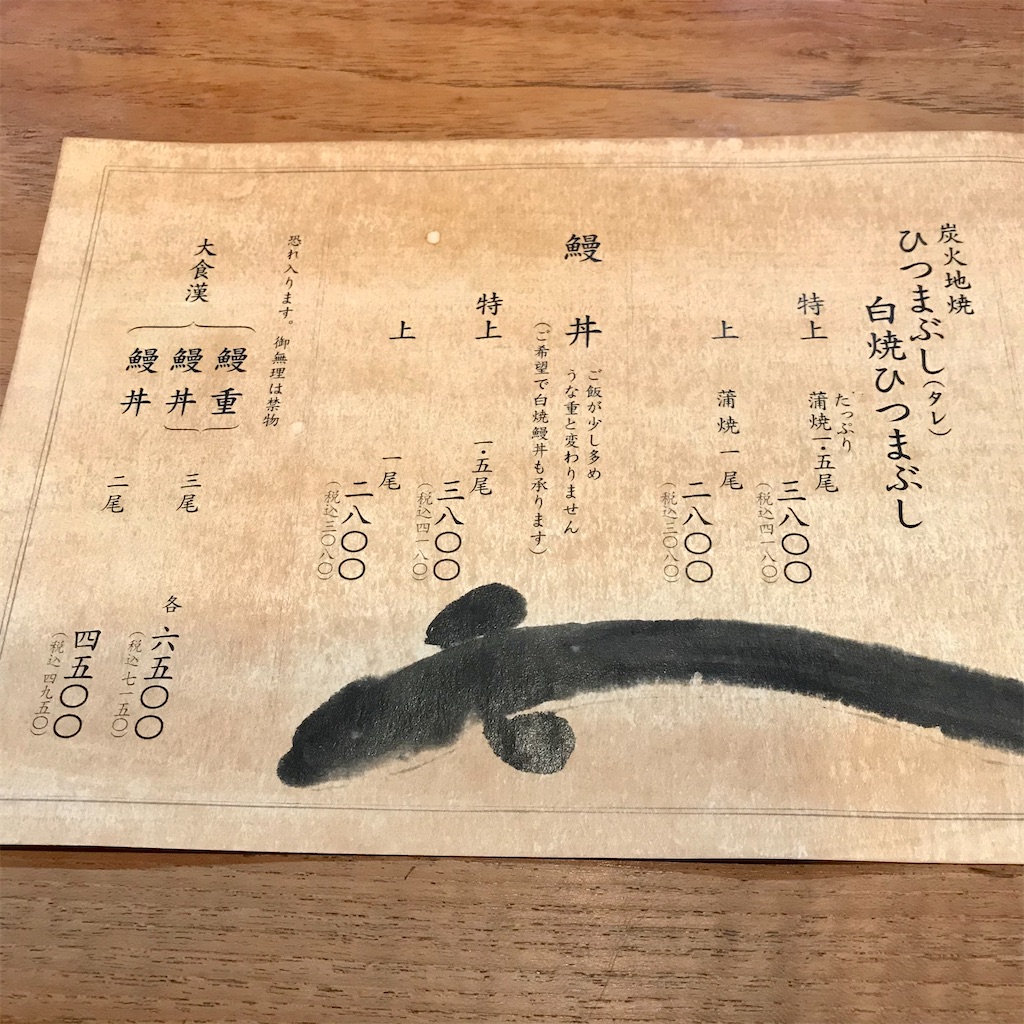 炭火地焼
ひつまぶし（タレ）
白焼ひつまぶし
特上
たっぷり
蒲焼一・五尾
三八〇〇
（税込四一八〇）
上
蒲焼 一尾
二八〇〇
（税込三〇八〇）
鰻 丼
ご飯が少し多め
うな重と変わりません
（ご希望で白焼鰻丼も承ります）
特上
一・五尾
三八〇〇
（税込四一八〇）
上
一尾
二八〇〇
（税込三〇八〇）
恐れ入ります。御無理は禁物
大食漢
鰻重
鰻丼
三尾
各 六五〇〇
（税込七一五〇）
鰻丼
二尾
四五〇〇
（税込四九五〇）